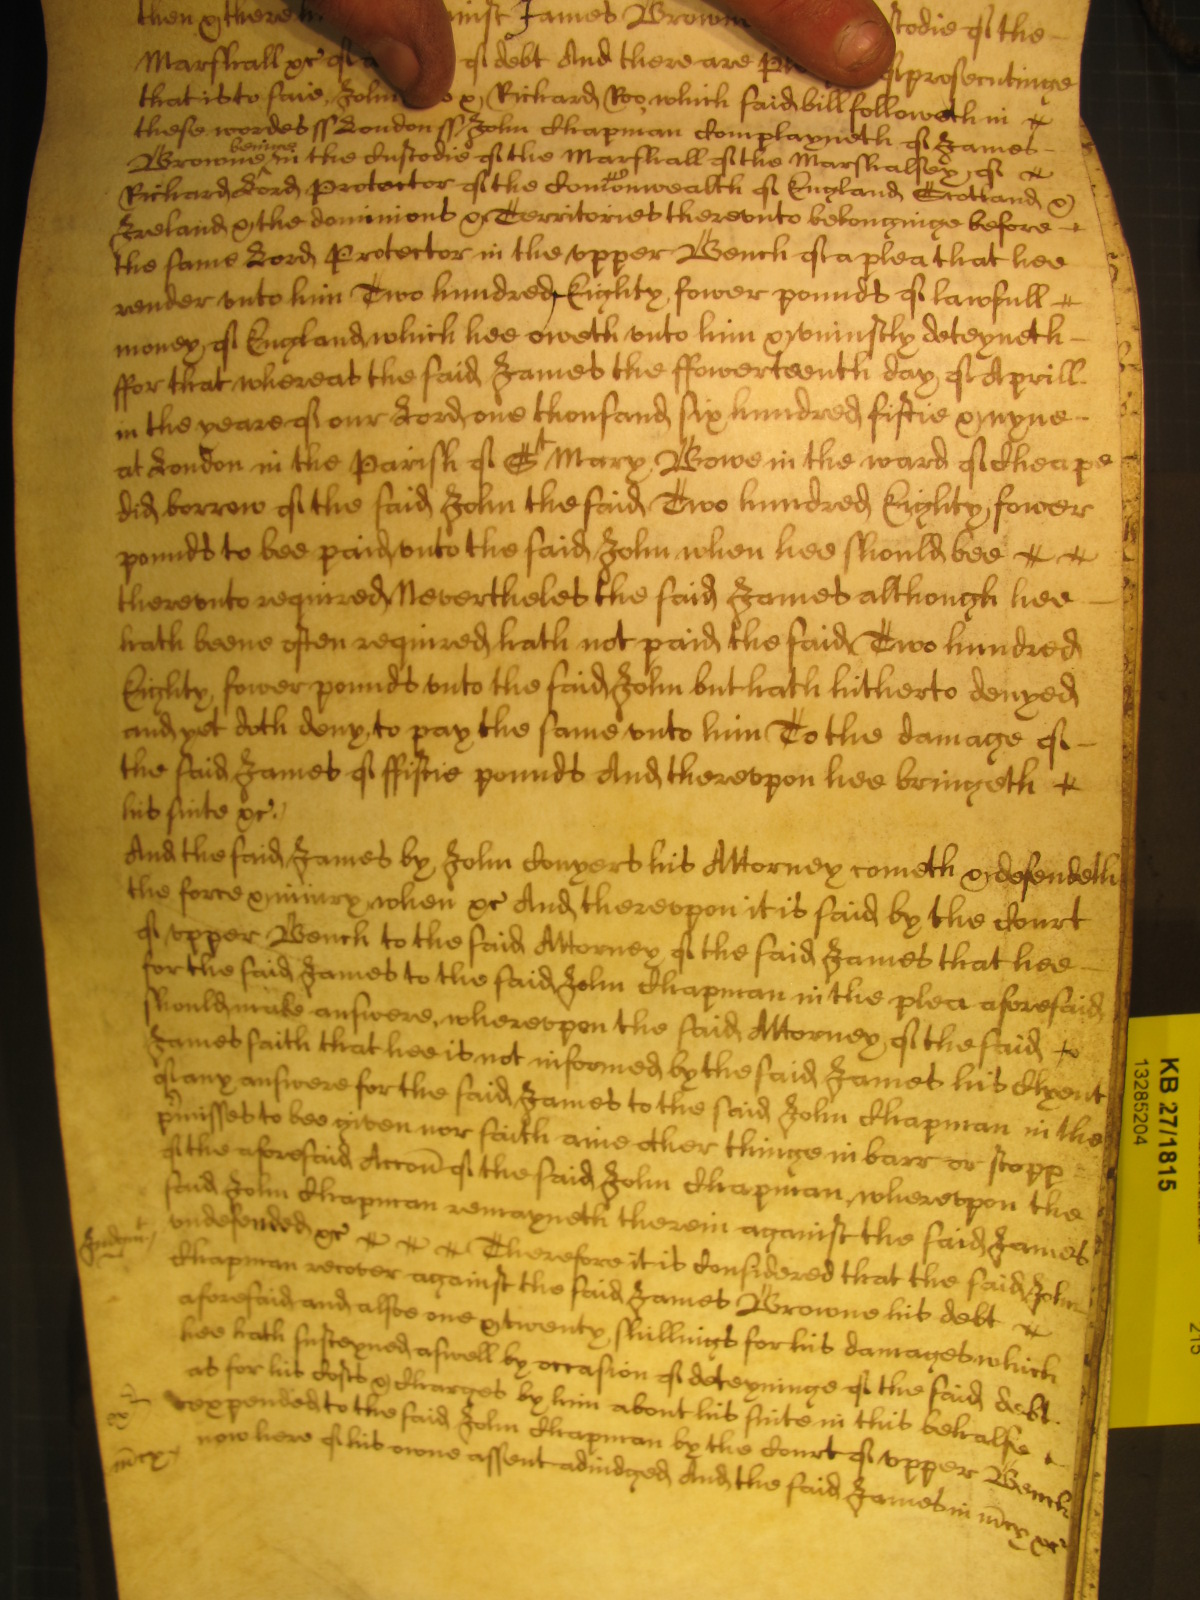 then & there against James Browne custodie of the
Marshall &c of a of debt And there are of prosecutinge
that is to saie, John & Richard Roo, which said bill followeth in
these wordes ss London ss John Chapman Complayneth of James
Browne beeinge in the Custodie of the Marshall of the Marshalsey, of
Richard Lord Protector of the Comonwealth of England Scotland &
Ireland & the dominions & Territories therevnto belonginge before
the same Lord Protector in the vpper Bench of a plea that hee
render vnto him Two hundred Eighty fower pounds of lawfull
money of England which hee oweth vnto him & vniustly deteyneth
ffor that whereas the said James the ffowerteenth day of Aprill
in the yeare of our Lord one thousand six hundred fiftie & nyne
at London in the Parish of St Mary Bowe in the ward of Cheape
did borrow of the said John the said Two hundred Eighty fower
pounds to bee paid vnto the said John when hee should bee
therevnto required Nevertheles the said James although hee
hath beene often required hath not paid the said Two hundred
Eighty fower pounds vnto the said John but hath hitherto denyed
and yet doth deny to pay the same vnto him To the damage of
the said James of ffiftie pounds And therevpon hee bringeth
his suite &c
And the said James by John Conyers his Attorney cometh & defendeth
the force & iniury when &c And therevpon it is said by the Court
of vpper Bench to the said Attorney of the said James that hee
for the said James to the said John Chapman in the plea aforesaid
should make answere, wherevpon the said Attorney of the said
James saith that hee is not informed by the said James his Clyent
of any answere for the said James to the said John Chapman in the
p'misses to bee given nor saith anie other thinge in barr or stopp
of the aforesaid Accon of the said John Chapman, wherevpon the
said John Chapman remayneth therein against the said James
Judgmt
vndefended &c Therefore it is Considered that the said John
Chapman recover against the said James Browne his debt
aforesaid and alsoe one & twenty shillings for his damages which
hee hath susteyned aswell by occasion of deteyninge of the said debt
as for his Costs & Charges by him about his suite in this behalfe
expended to the said John Chapman by the Court of vpper Bench
now here of his owne assent adiudged And the said James in mcy &c
mcy
KB 27/1815
13285204
215